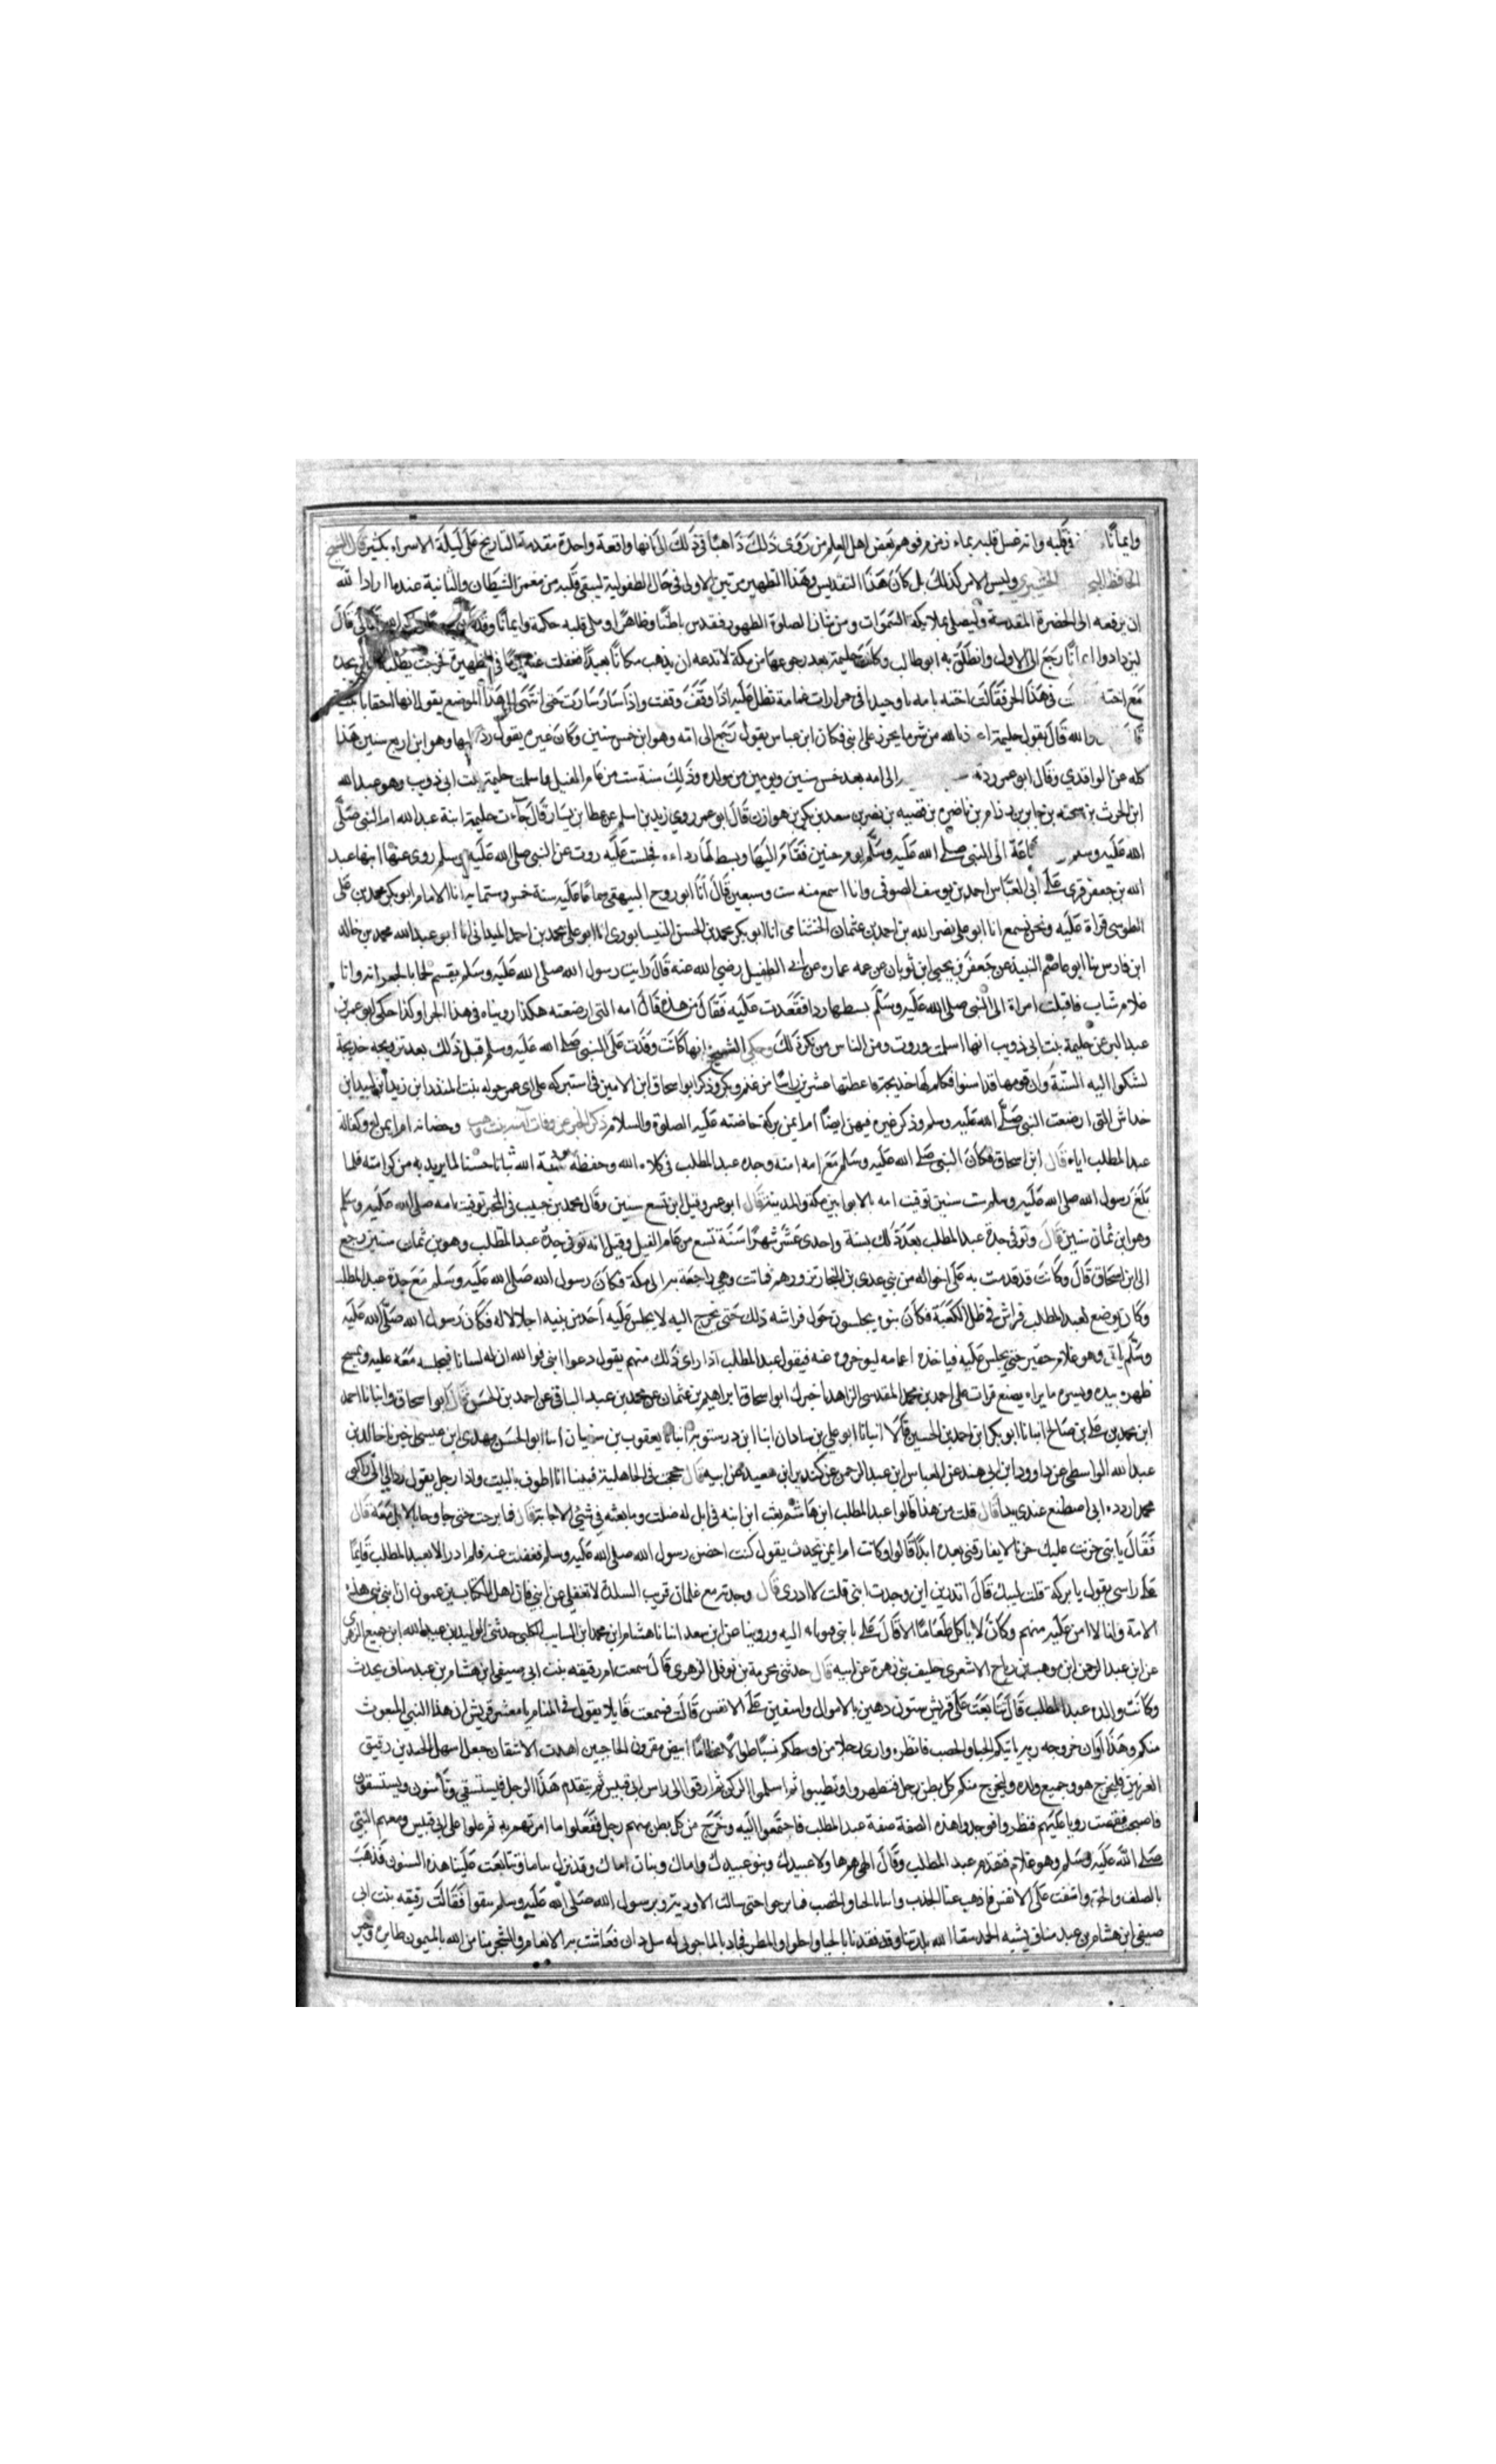 وايمانا في قلبه وانه غسل قلبه بماء زمزم فوهم بعض اهل العلم من روى ذلك ذاهبا في ذلك الى انها واقعة واحدة متقدمة التاريخ على ليلة الاسراء بكثير قال الشيخ
الحافظ وليس الامر كذلك بل كان هذا التقديس وهذا التطهير مرتين الاولى في حال الطفولية لينقى قلبه من مغمز الشيطان والثانية عندما اراد الله
ان يرفعه الى الحضرة المقدسة وليصلي بملايكة السموات ومن شان الصلوة الطهور فقدس باطنا وظاهرا وملى قلبه حكمة وايمانا وقد الله تعالى قال
ليزدادوا ايمانا رجع الى الاول وانطلق به ابو طالب وكانت حليمة بعد رجوعها من مكة لا تدعه ان يذهب مكانا بعيدا فغفلت عنه يوما في الظهيرة فخرجت تطلبه حتى تجده
مع اخته في هذا الحر فقالت اخته يا امه ما وجد اخي حرا رات غمامة تظل عليه اذا وقف وقفت واذا سار سارت حتى انتهى الى هذا الموضع يقول امها احقا يا بنية
والله قال يقول حليمة اعوذ بالله من شر ما يحذر على ابني فكان ابن عباس يقول رجع الى امه وهو ابن خمس سنين وكان غيره يقول رد اليها وهو ابن اربع سنين هذا
كله عن الواقدي وقال ابو عمر ردته الى امه بعد خمس سنين ويومين من مولده وذلك سنة ست من عام الفيل اسلمت حليمة بنت ابي ذويب وهو عبد الله
ابن الحرث بن سحنه بن جابر بن رزام بن ناضره بن قصيه بن نصر بن سعد بن بكر بن هوازن قال ابو عمر روي زيد بن اسلم عن عطا بن يسار قال جاءت حليمة ابنة عبد الله ام النبي صلى
الله عليه وسلم الى النبي صلى الله عليه وسلم يوم حنين فقام اليها وبسط لها رداءه فجلست عليه روت عن النبي صلى الله عليه وسلم روى عنها ابنها عبد
الله بن جعفر قرئ على ابي العباس احمد بن يوسف الصوفي وانا اسمع منه ست وسبعين قال انا ابو روح البيهقي سماعا عليه سنة خمس وستماية انا الامام ابو بكر محمد بن علي
الطوسي قراة عليه ونحن نسمع انا ابو علي نصر الله بن احمد بن عثمان الخشنامي انا ابو بكر محمد بن الحسن النيسابوري انا ابو علي محمد بن احمد الميداني انا ابو عبد الله محمد بن خالد
ابن فارس نا ابو عاصم النبيذ عن جعفر بن يحيى ابن ثوبان عن عمه عمارة عن ابي الطفيل رضي الله عنه قال رايت رسول الله صلى الله عليه وسلم يقسم لحما بالجعرانه وانا
غلام شاب فاقبلت امراة الى النبي صلى الله عليه وسلم بسط لها ردا فقعدت عليه فقال من هذه قال امه التي ارضعته هكذا رويناه في هذا الخبر وكذا حكى ابو عمر بن
عبد البر عن حليمة بنت ابي ذويب انها اسلمت وروت ومن الناس من ينكر ذلك وحكي الشيخ انها كانت وفدت على النبي صلى الله عليه وسلم قبل ذلك بعد تزويجه خديجة
لشكوا اليه السنة وان قومها قد اسنتوا فكلم لها خديجة فاعطتها عشرين راسا من غنم وبكر وذكر ابو اسحاق ابن الامين في استدركه على ابي عمر خوله بنت المنذر ابن زيد ابن لبيد ابن
خداش التي ارضعت النبي صلى الله عليه وسلم وذكر غيره فيهن ايضا ام ايمن بركة حاضنته عليه الصلوة والسلام ذكر الخبر عن وفات آمنه بنت وهب وحضانه ام ايمن له وكفالة
عبد المطلب اياه قال ابن اسحاق فكان النبي صلى الله عليه وسلم مع امه امنه وجده عبد المطلب في كلاءه الله وحفظه ينبته الله نباتا حسنا لما يريد به من كرامته فلما
بلغ رسول الله صلى الله عليه وسلم ست سنين توفيت امه بالابوا بين مكة والمدينة قال ابو عمر وقيل ابن تسع سنين وقال محمد بن حبيب في المحبر توفيت امه صلى الله عليه وسلم
وهو ابن ثمان سنين قال وتوفي جدة عبد المطلب بعد ذلك بسنة واحدى عشر شهرا سنة تسع من عام الفيل وقيل انه توفي جده عبد المطلب وهو بن ثمان سنين رجع
الى ابن اسحاق قال وكانت قد قدمت به على اخواله من بني عدي بن النجار تزورهم فماتت وهي راجعة به الى مكة فكان رسول الله صلى الله عليه وسلم مع جده عبد المطلب
وكان يوضع لعبد المطلب فراش في ظل الكعبة فكان بنوه يجلسون حول فراشه ذلك حتى يخرج اليه لا يجلس عليه احد من بنيه اجلالا له فكان رسول الله صلى الله عليه
وسلم ياتي وهو غلام جفر حتى يجلس عليه فياخذه اعمامه ليوخروه عنه فيقول عبد المطلب اذا راى ذلك منهم يقول دعوا ابني فوالله ان له لسانا فيجلسه معه عليه ويمسح
ظهره بيده ويسره ما يراه يصنع قرات على احمد بن محمد المقدسي الزاهد اخبرك ابو اسحاق ابراهيم بن عثمان عن محمد بن عبد الباقي عن احمد بن الحسن قال ابو اسحاق وانبانا احمد
ابن محمد بن علي بن صالح انبانا ابو بكر ابن احمد بن الحسين قالا انبانا ابو علي بن شاذان ابنا ابن درستويه انبانا يعقوب بن سفيان انبا ابو الحسن مهدي ابن عيسى اخبرنا خالد بن
عبد الله الواسطي عن داوود ابن ابي هند عن العباس ابن عبد الرحمن عن كندير ابن سعيد عن ابيه قال حججت في الجاهلية فبينا انا اطوف بالبيت واذا رجل يقول رد الي راكبي
محمد اردده الي اصطنع عندي يدا قال قلت من هذا قالوا عبد المطلب ابن هاشم بعث ابن ابنه في ابل له ضلت وما بعثه في شيئ الا جا به قال فما برحت حتى جا وجا بالابل معه قال
فقال يا بني حزنت عليك حزنا لا يفارقني بعده ابدا قالوا وكانت ام ايمن تحدث يقول كنت احضن رسول الله صلى الله عليه وسلم فغفلت عنه فلم ادر الا بعبد المطلب قايما
على راسي يقول يا بركة قلت لبيك قال اتدرين اين وجدت ابني قلت لا ادري قال وجدته مع غلمان قريب السدرة لا تغفلي عن ابني فان اهل الكتاب يزعمون ان ابني نبي هذه
الامة وانا لا امن عليه منهم وكان لا ياكل طعاما الا قال علي يا بني فيوتا به اليه وروينا عن ابن سعد انبانا هشام ابن محمد ابن السايب الكلبي حدثني الوليد بن عبد الله ابن جميع الزهري
عن ابن عبد الرحمن ابن موهب بن رباح الاشعري حليف بني زهرة عن ابيه قال حدثني مخرمة بن نوفل الزهري قال سمعت امي رقيقه بنت ابي صيفي ابن هشام بن عبد مناف يحدث
وكانت والده عبد المطلب قال تتابعت على قريش سنون ذهبن بالاموال واشفين على الانفس قالت فسمعت قايلا يقول في المنام يا معشر قريش ان هذا النبي المبعوث
منكم وهذا اوان خروجه وبه ياتيكم الحيا والخصب فانظروا رجلا من اوسطكم نسبا طوالا عظاما ابيض مقرون الحاجبين اهدب الاشفار جعدا سهل الخدين رقيق
العرنين فليخرج هو وجميع ولده وليخرج منكم كل بطن رجل فتطهروا وتطيبوا ثم استلموا الركن ثم ارقوا الى راس ابي قبيس ثم يتقدم هذا الرجل فيستسقي وتامنون ويستسقون
فاصبحت فقصت روياها عليهم فنظروا فوجدوا هذه الصفة صفة عبد المطلب فاجتمعوا اليه وخرج من كل بطن منهم رجل ففعلوا ما امرتهم به ثم علوا على ابي قبيس ومعهم النبي
صلى الله عليه وسلم وهو غلام فتقدم عبد المطلب وقال اللهم هولاء عبيدك وبنو عبيدك واماك وبنات اماك وقد نزل بنا ما ترى وتتابعت علينا هذه السنون فذهبت
بالضلف والخف واشفت على الانفس فاذهب عنا الجذب وايتنا بالحيا والخصب فما برحوا حتى سالت الاودية وبرسول الله صلى الله عليه وسلم سقوا فقالت رقيقه بنت ابي
صيفي ابن هشام بن عبد مناف بشيبة الحمد سقا الله بلدتنا وقد فقدنا الحيا واجلوذ المطر فجاد بالما جوني له سبل دان فعاشت به الانعام والشجر منا من الله بالميمون طايره وخير